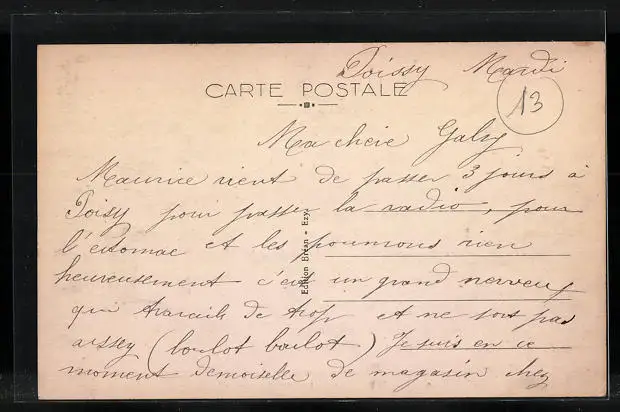 Poissy Mardi
CARTE POSTALE
13
Ma chere Gaby
Maurice vient de passer 3 jours à
Poisy pour passer la radio, pour
l'estomac et les poumons rien
heureusement c'est un grand nerveux
qui travaile de trop et ne sors pas
assey (boulot boulot) Je suis en ce
moment demoiselle de magasin chez
Edition Bréan - Ezy